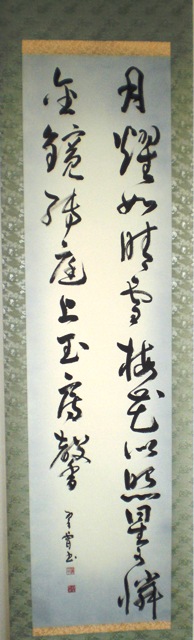 月耀如晴雪梅花似照星可憐
金鏡轉庭上玉房馨